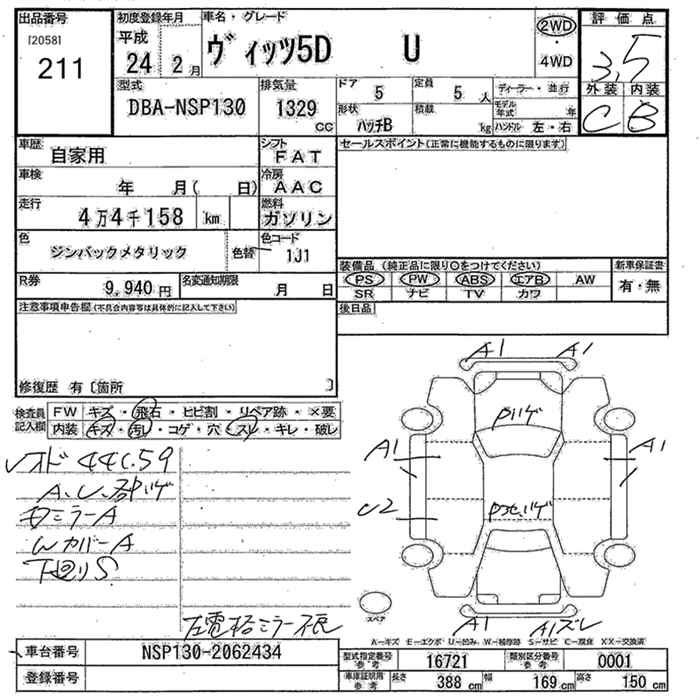 出品番号
[2058]
211
初度登録年月
平成
24 2 月
車名・グレード
ヴィッツ5D U
2WD
・
4WD
評価点
3,5
外装 内装
C B
型式
DBA-NSP130
排気量
1329
cc
ドア
5
定員
5 人
形状
ハッチB
積載
kg
ディーラー・並行
モデル年式 年
ハンドル 左・右
車歴
自家用
シフト
FAT
車検
年 月( 日)
冷房
AAC
走行
4万4千158 km
燃料
ガソリン
色
ジンバックメタリック
色替
色コード
1J1
R券
9,940 円
名変通知期限
月 日
セールスポイント(正常に機能するものに限ります)
装備品 (純正品に限り○をつけてください)
PS PW ABS エアB AW
SR ナビ TV カワ
新車保証書
有・無
後日品
注意事項申告欄(不具合内容等は具体的に記入して下さい)
修復歴 有〔箇所 〕
検査員記入欄
FW キズ・飛石・ヒビ割・リペア跡・×要
内装 キズ・汚レ・コゲ・穴・スレ・キレ・破レ
44459
ミラーA
WカバーA
下回りS
左電格ミラー不良
A1 A1
A1 A1
U2
A1 A1ズレ
スペア
A−キズ E−エクボ U−凹み W−補修跡 S−サビ C−腐食 XX−交換済
車台番号
NSP130-2062434
登録番号
型式指定番号
参考
16721
類別区分番号
参考
0001
車庫証明用
参考
長さ 388 cm 幅 169 cm 高さ 150 cm